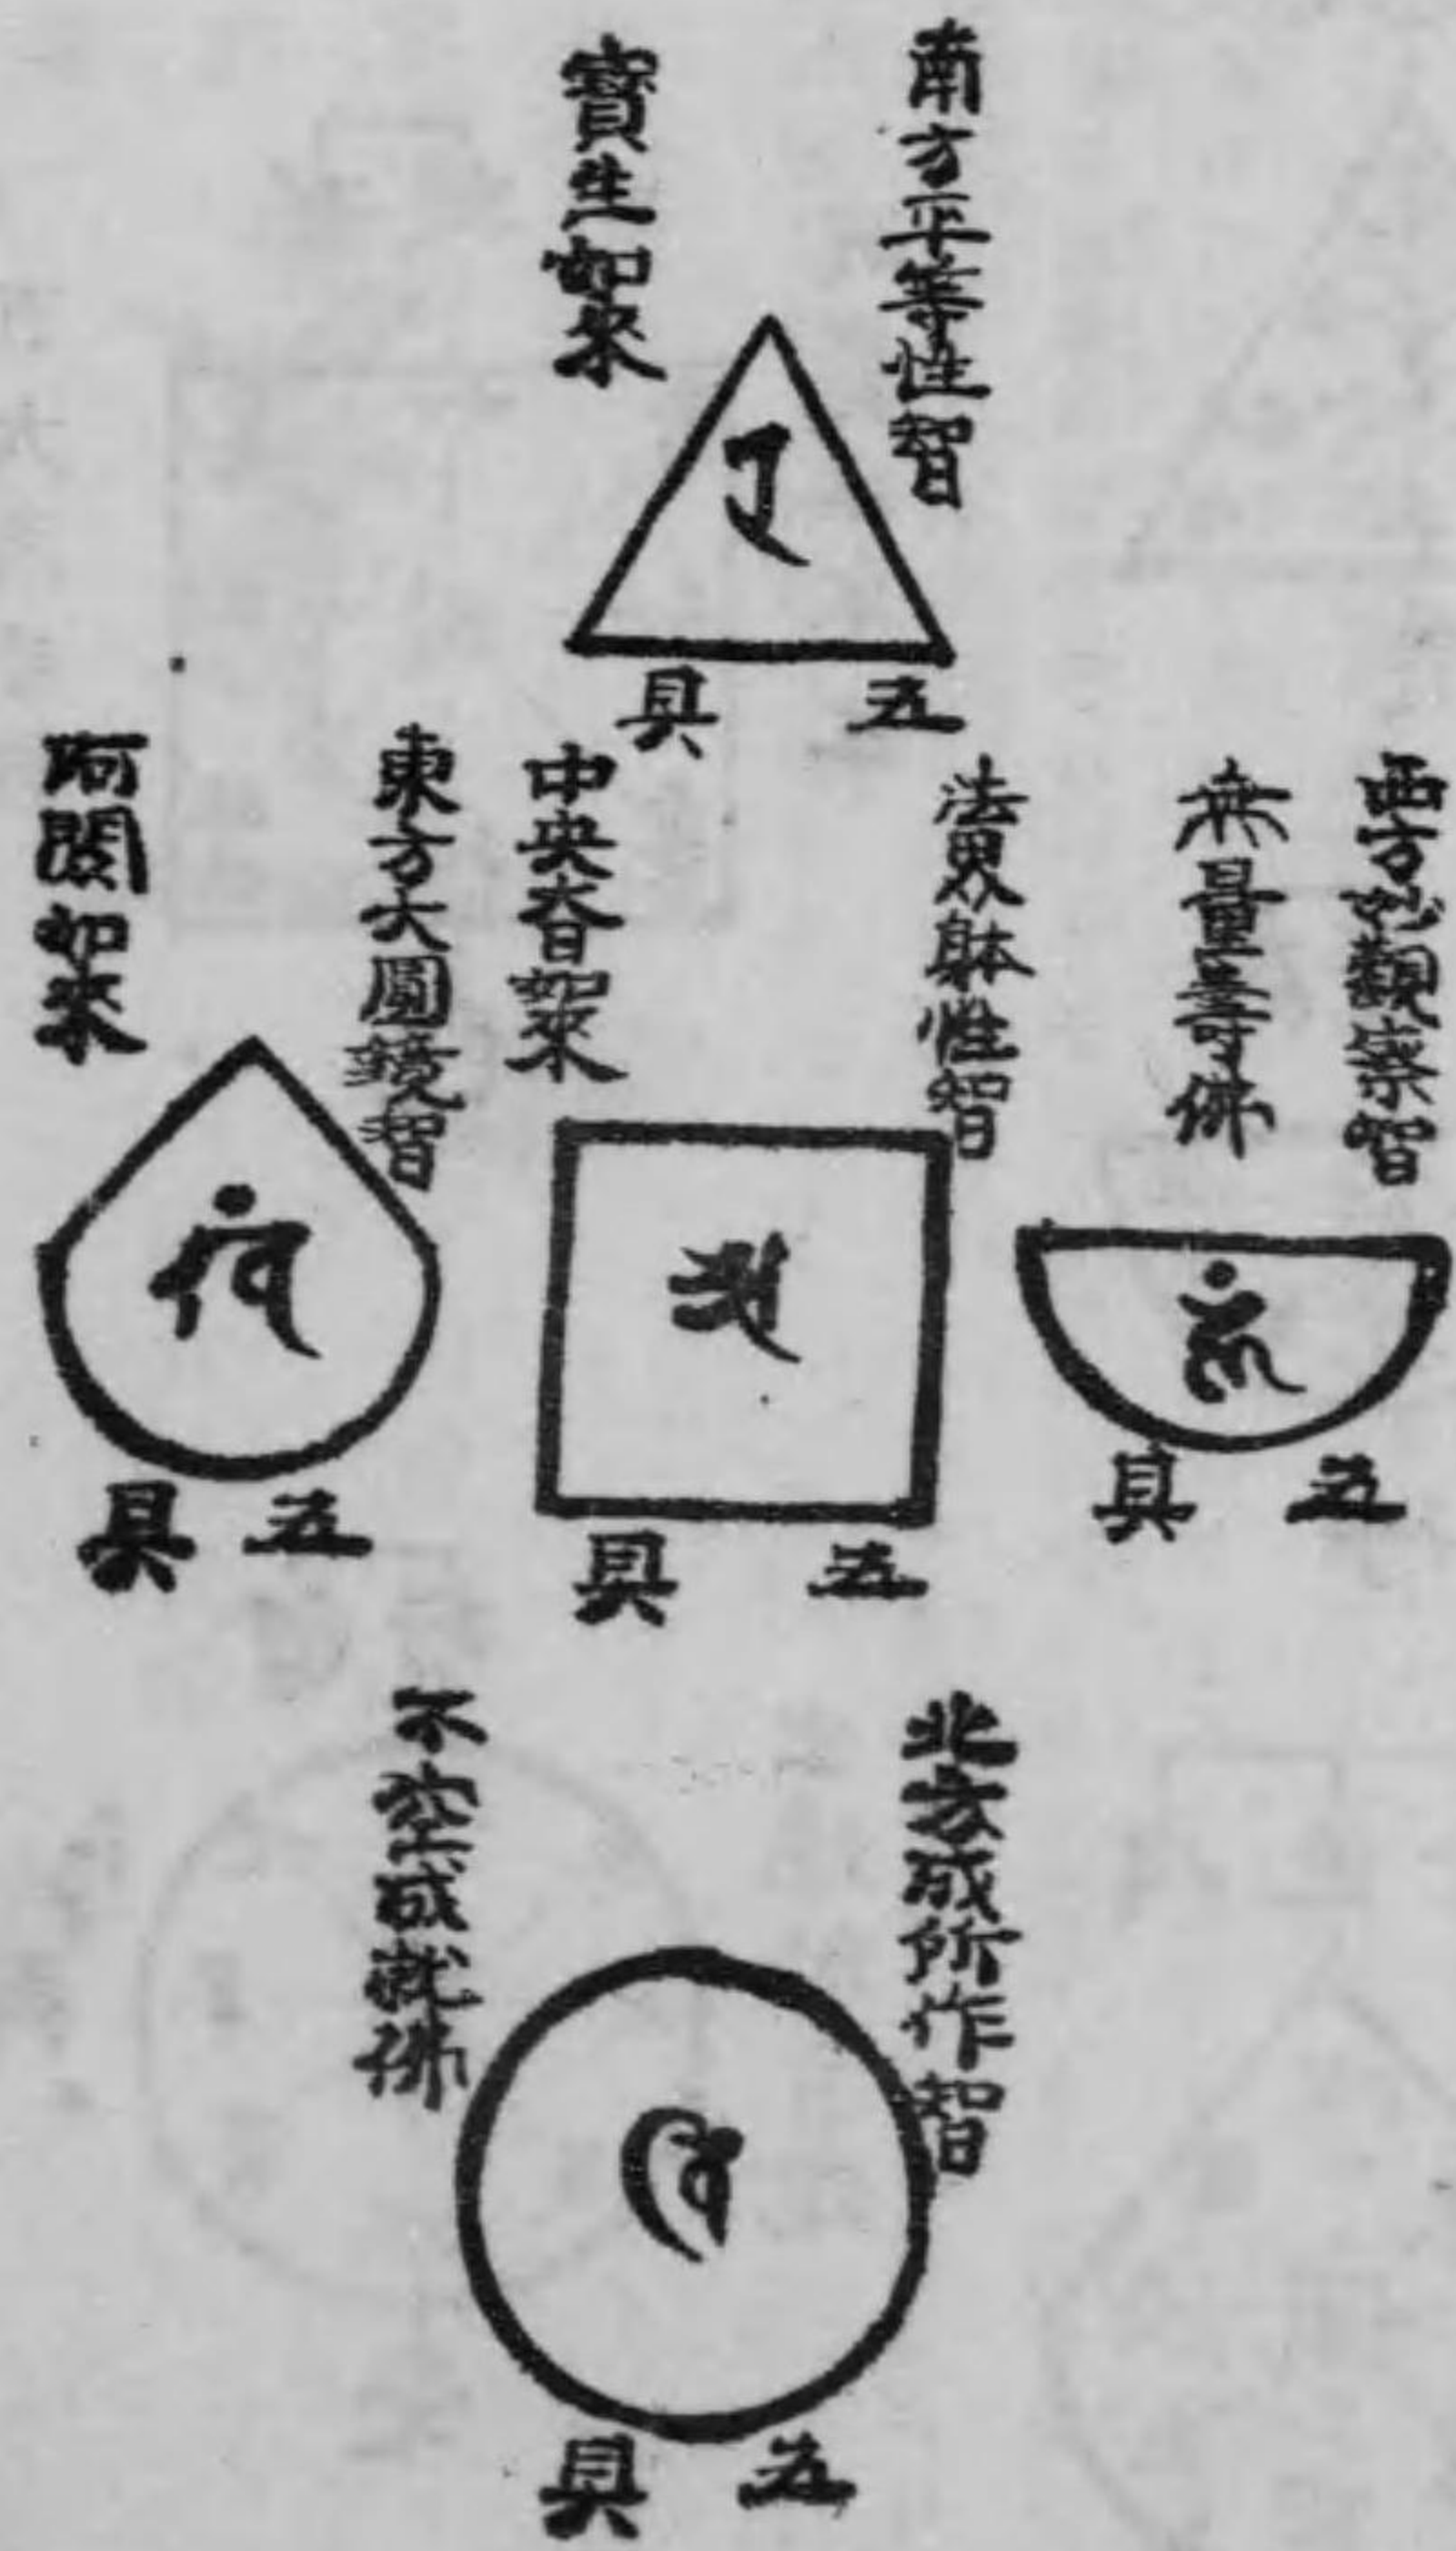 南方平等性智
寶生如來
五具
西方妙觀察智
無量壽佛
五具
法界躰性智
中央大日如來
五具
東方大圓鏡智
阿閦如來
五具
北方成所作智
不空成就佛
五具